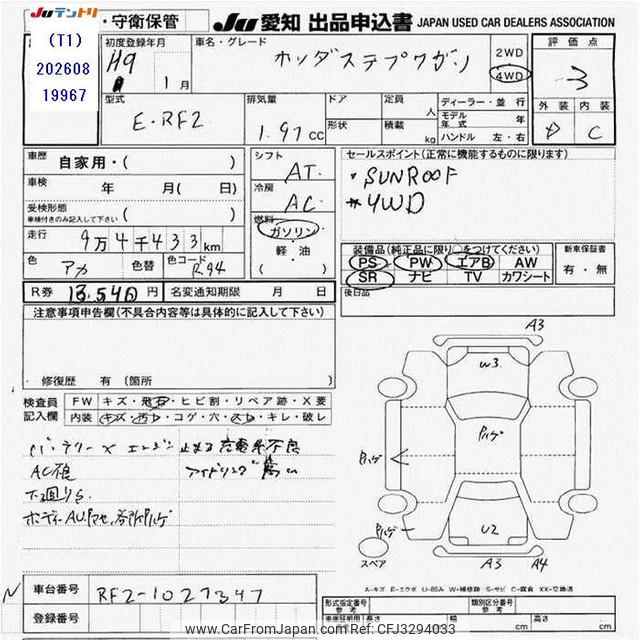 Juテントリ
(T1)
202608
19967
・守衛保管
JU 愛知 出品申込書 JAPAN USED CAR DEALERS ASSOCIATION
初度登録年月
H9
1月
車名・グレード
ホンダステップワゴン
2WD
4WD
評価点
3
外装 内装
C
型式
E-RF2
排気量
1.97cc
ドア
形状
定員 人
積載 kg
ディーラー・並行
モデル年式 年
ハンドル 左・右
車歴
自家用・( )
車検
年 月( 日)
受検形態
車検付きのみ記入して下さい ( )
走行
9万4千433km
色
アカ
色替
色コード
R-94
シフト
AT
冷房
AC
燃料
ガソリン
軽・油
( )
セールスポイント(正常に機能するものに限ります)
・SUNROOF
*4WD
装備品(純正品に限り○をつけてください)
PS PW エアB AW
SR ナビ TV カワシート
新車保証書
有・無
後日品
R券 13,540円 名変通知期限 月 日
注意事項申告欄(不具合内容等は具体的に記入して下さい)
修復歴 有 (箇所
検査員記入欄
FW キズ・飛石・ヒビ割・リペア跡・X要
内装 キズ・汚レ・コゲ・穴・スレ・キレ・破レ
バッテリー× エンジン止める 充電系不良
AC
アイドリング高い
下廻りS
A3
W3
U2
A3 A4
スペア
A-キズ E-エクボ U-凹み W-補修跡 S-サビ C-腐食 XX-交換済
N
車台番号
RF2-1027347
登録番号
形式指定番号
参考
類別区分番号
参考
車検証明用
長さ
幅
高さ
www.CarFromJapan.com Ref: CFJ3294033